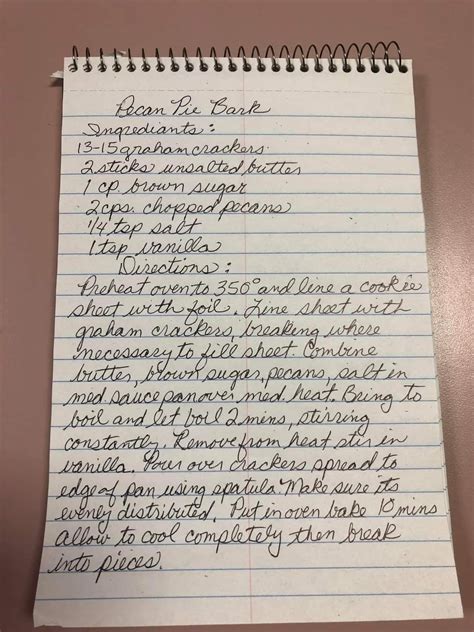 Pecan Pie Bark
Ingrediants:
13-15 graham crackers
2 sticks unsalted butter
1 cp. brown sugar
2 cps. chopped pecans
1/4 tsp salt
1 tsp vanilla
Directions:
Preheat oven to 350° and line a cookie
sheet with foil. Line sheet with
graham crackers, breaking where
necessary to fill sheet. Combine
butter, brown sugar, pecans, salt in
med. sauce pan over med. heat. Being to
boil and let boil 2 mins, stirring
constantly. Remove from heat stir in
vanilla. Pour over crackers spread to
edge of pan using spatula. Make sure its
evenly distributed. Put in oven bake 10 mins
Allow to cool completely then break
into pieces.